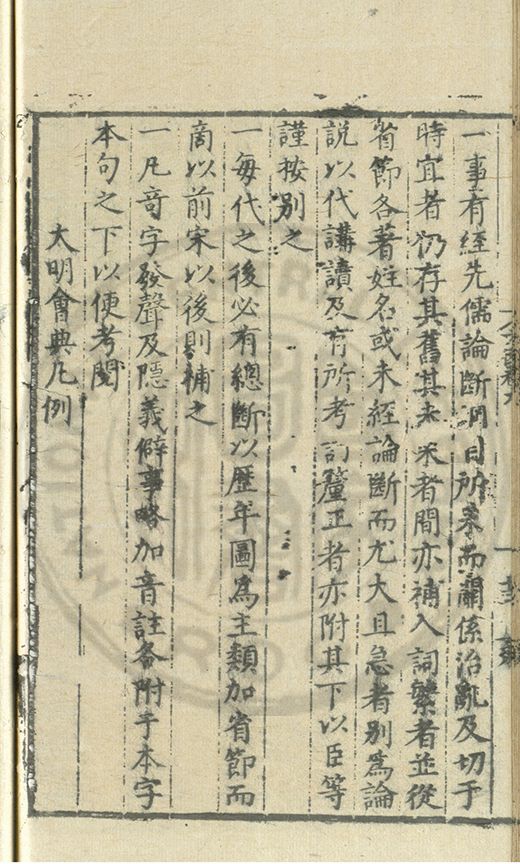 一事有經先儒論斷綱目所采而關係治亂及切于
時宜者仍存其舊其未采者間亦補入詞繁者並從
省節各著姓名或未經論斷而尤大且急者別為論
說以代講讀及有所考訂釐正者亦附其下以臣等
謹按別之
一每代之後必有總斷以歷年圖爲主類加省節而
商以前宋以後則補之
一凡奇字發聲及隱義僻事略加音註各附于本字
本句之下以便考閱
大明會典凡例